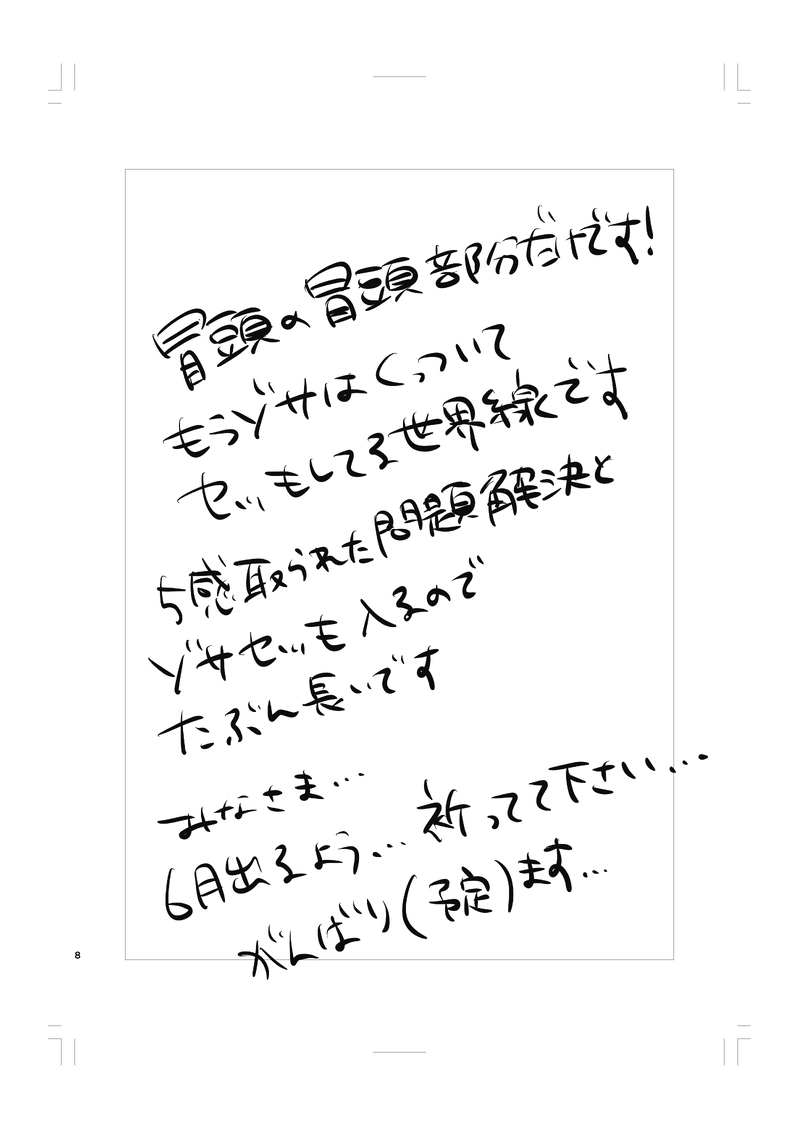 冒頭の冒頭部分だけです!
もうゾサはくっついて
セッもしてる世界線です
5感取られた問題解決と
ゾサセッも入るので
たぶん長いです
みなさま…
6月出るよう…祈ってて下さい…
がんばり(予定)ます…
8